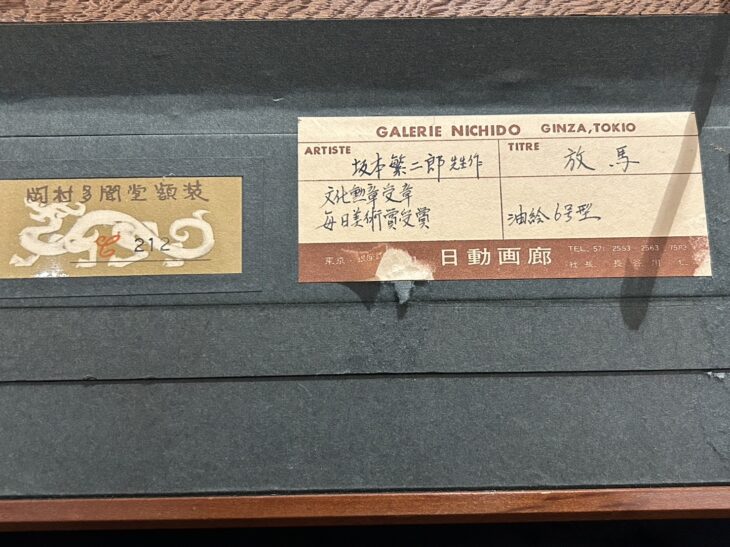 岡村多聞堂額装
212
GALERIE NICHIDO GINZA, TOKIO
ARTISTE
坂本繁二郎先生作
文化勲章受章
毎日美術賞受賞
TITRE
放馬
油絵6号型
東京・銀座
日動画廊
TEL. 571 2553・2563・7583
社長 長谷川仁